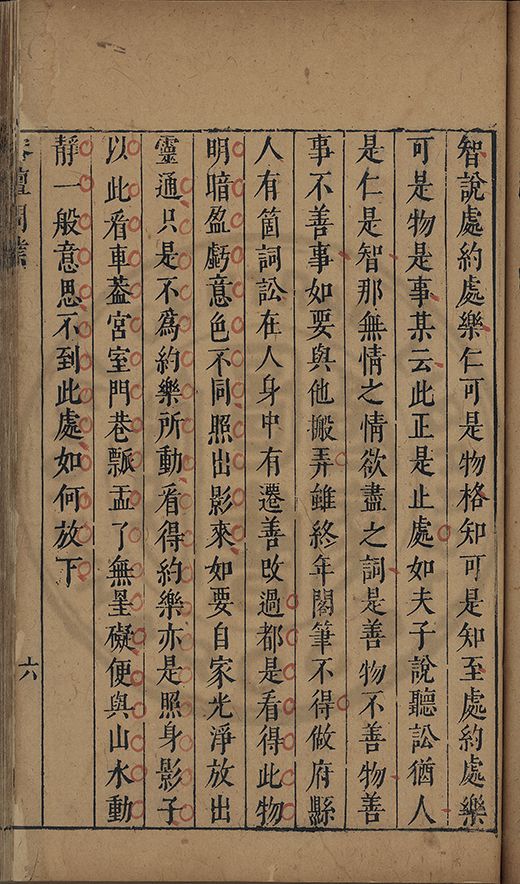 智說處約處樂仁可是物格知可是知至處約處樂
可是物是事某云此正是止處如夫子說聽訟猶人
是仁是智那無情之情欲盡之詞是善物不善物善
事不善事如要與他搬弄雖終年閣筆不得做府縣
人有箇詞訟在人身中有遷善改過都是看得此物
明暗盈虧意色不同照出影來如要自家光淨放出
靈通只是不爲約樂所動看得約樂亦是照身影子
以此看車蓋宮室門巷瓢盂了無罣礙便與山水動
靜一般意思不到此處如何放下
壇問業
六